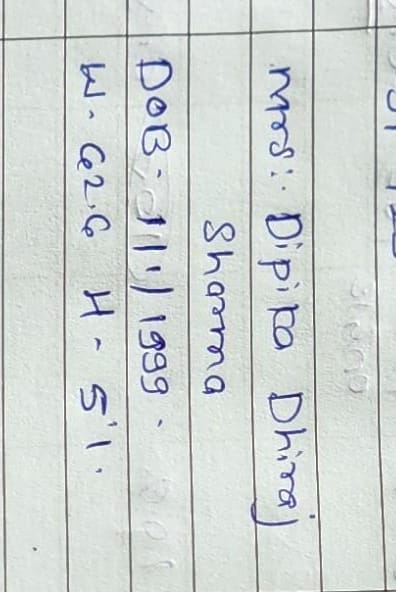 Mrs: Dipika Dhiraj
Sharma
DOB. 1/1/1999.
W. 62.6 H- 5'1.